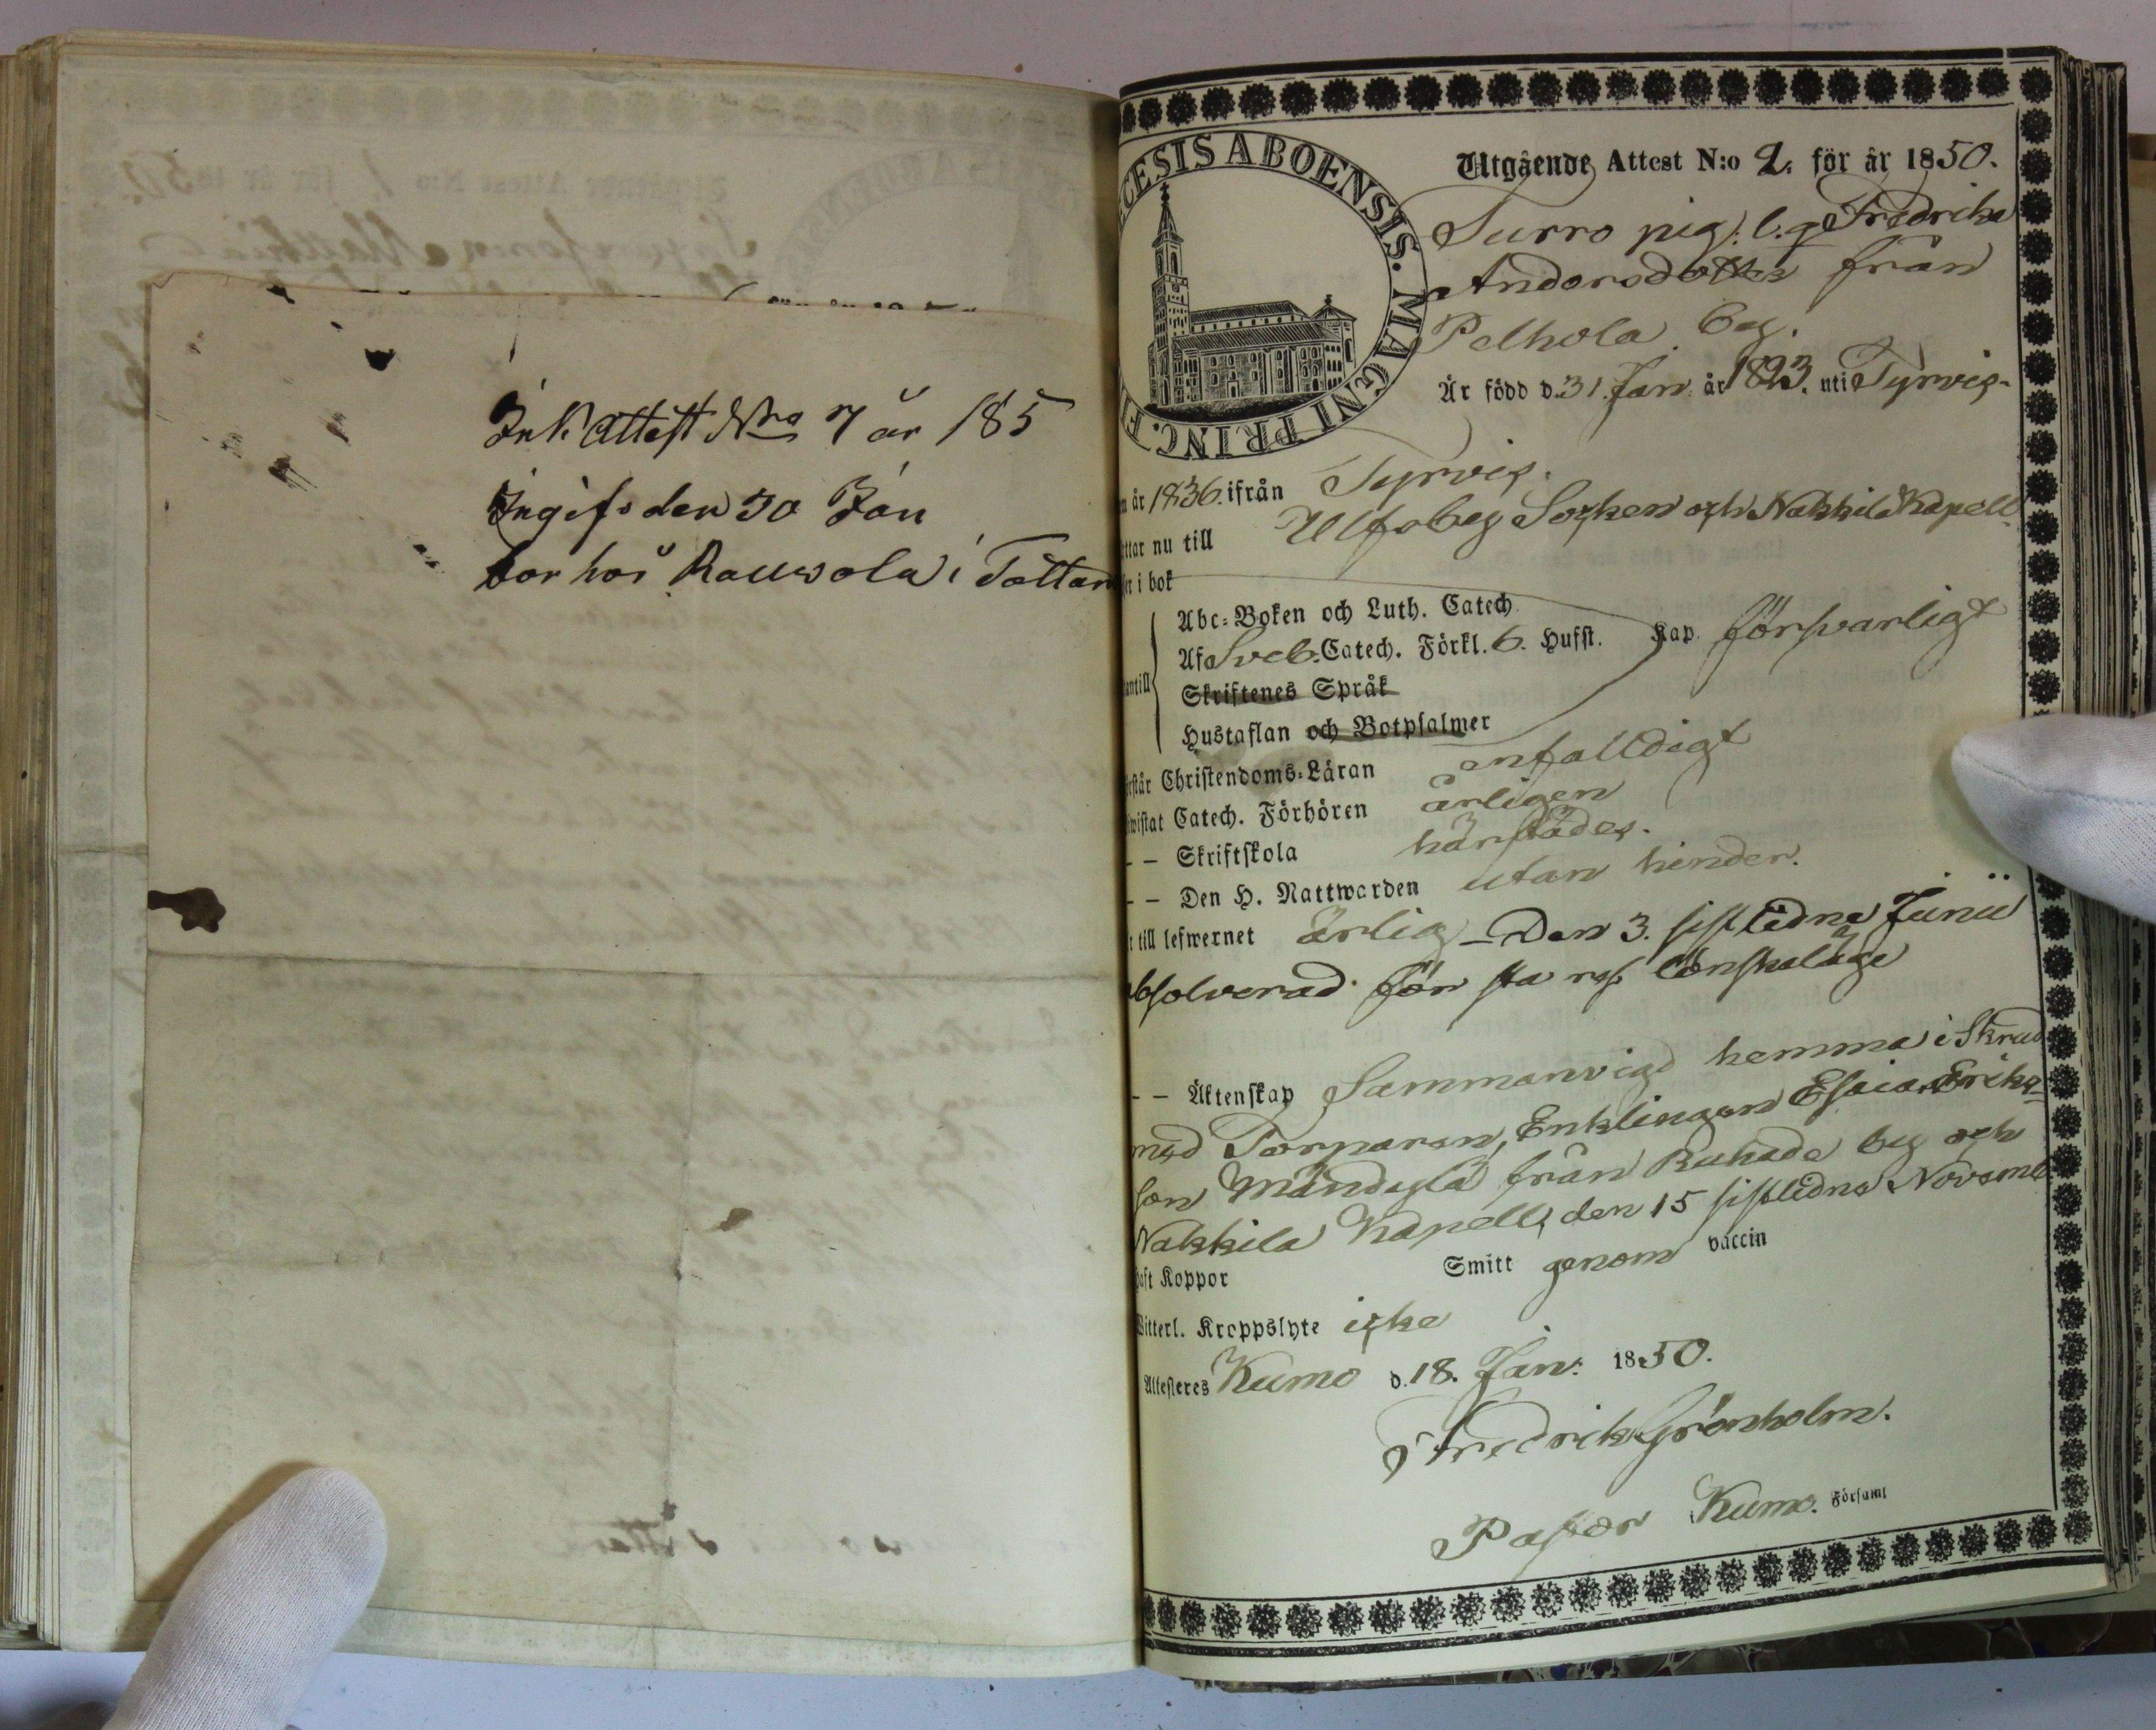 Ink. Attest Nro 7 år 185
Ingifs den 30 Jan
bor hos Rauwola i Tattar
DIOECESIS ABOENSIS. MAGNI PRINC. F
Utgående Attest N:o 2. för år 1850.
Turro pig: l.q. Fredrika
Andersdotter från
Pelhola by.
Är född d. 31. Jan. år 1823. uti Tyrvis
m år 1836. ifrån Tyrvis.
ttar nu till Ulfsby Socken och Nakkila Kapell
er i bok
Abc-Boken och Luth. Catech.
Af Sveb. Catech. Förkl. 6. Hufst. Kap. försvarligt
antill
Skriftenes Språk
Hustaflan och Botpsalmer
rstår Christendoms-Läran enfalldigt
wistat Catech. Förhören årligen
– – Skriftskola härstädes.
– – Den H. Nattwarden utan hinder.
r till lefwernet ärlig – Den 3. sistledne Junii
absolverad för 1sta resa lönskaläge
– – Äktenskap Sammanvigd hemma i Skrud
med Torparen, Enklingen Esaias Eriks-
son Mändylä från Ruhade by och
Nakkila Kapell, den 15 sistledne Novemb
haft Koppor Smitt genom vaccin
Witterl. Kroppslyte icke
Attesteres Kumo d. 18. Jan: 1850.
Fredrik Grönholm.
Pastor Kumo. Församl